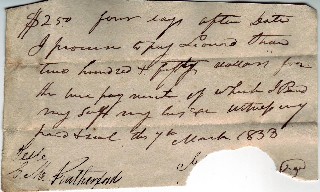 $250 four days after date
I promise to pay Leonard than
two hundred & fifty dollars for
the true payment of which I Bind
my self my &c witness my
hand & seal this 7th March 1833
Teste
Rutherford